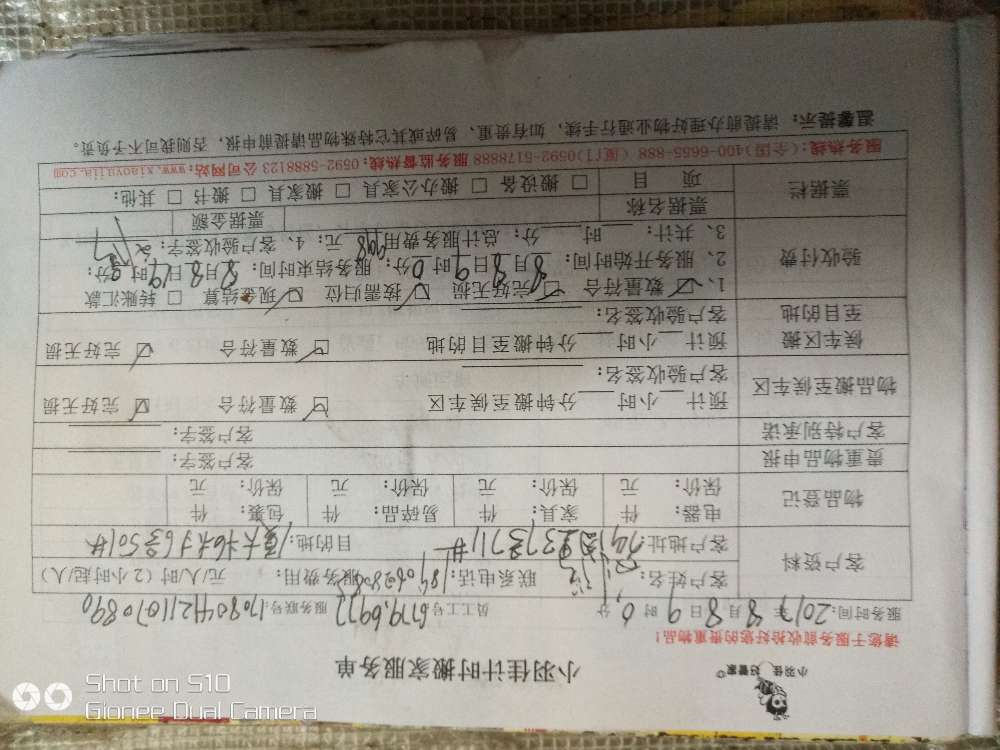 小羽佳 好管家
小羽佳计时搬家服务单
请您于服务前收拾好您的贵重物品!
服务时间: 2017年 8月 8日 9时 0分 员工工号 服务联号:
客户资料 客户姓名: 联系电话: 服务费用: 元/人/时 (2小时起/人)
客户地址: 目的地:
物品登记 电器: 件 家具: 件 易碎品: 件 包裹: 件
保价: 元 保价: 元 保价: 元 保价: 元
贵重物品申报 客户签字:
客户特别承诺 客户签字:
物品搬至候车区 预计 小时 分钟搬至候车区 ☑ 数量符合 ☑ 完好无损
客户验收签名:
候车区搬至目的地 预计 小时 分钟搬至目的地 ☑ 数量符合 ☑ 完好无损
客户验收签名:
验收付费 1、☑ 数量符合 ☑ 完好无损 ☑ 按需归位 ☑ 现金结算 □ 转账汇款
2、服务开始时间: 8月8日9时0分; 服务结束时间: 8月8日 时 分;
3、共计: 时 分; 总计服务费用 元; 4、客户验收签字:
票据栏 票据名称 票据金额
项 目 □ 搬设备 □ 搬办公家具 □ 搬家具 □ 搬书 □ 其他:
服务热线:(全国)400-6655-888 (厦门)0592-5178888 服务监督热线:0592-5888123 公司网站:www.xiaoyujia.com
温馨提示: 请提前办理好物业通行手续, 如有贵重、易碎或其它特殊物品请提前申报, 否则我司可不予负责。
Shot on S10
Gionee Dual Camera